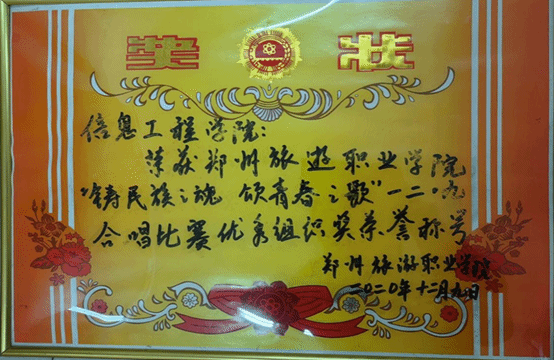 奖状
信息工程学院：
荣获郑州旅游职业学院
“铸民族之魂 颂青春之歌”一二·九
合唱比赛优秀组织奖荣誉称号
郑州旅游职业学院
二〇二〇年十二月九日